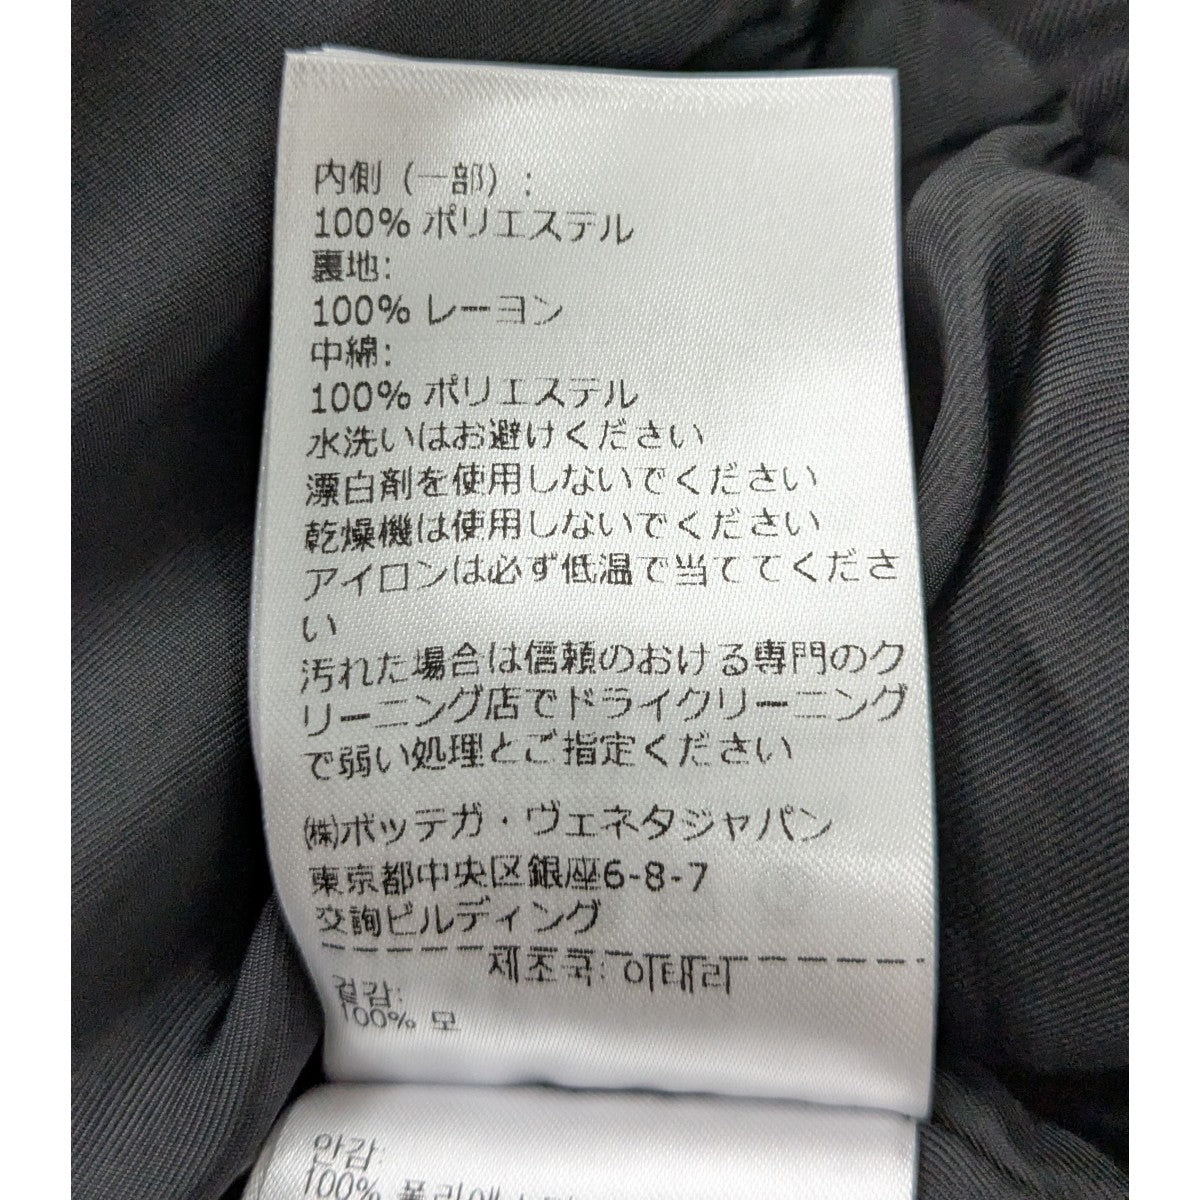 内側 (一部) :
100% ポリエステル
裏地:
100% レーヨン
中綿:
100% ポリエステル
水洗いはお避けください
漂白剤を使用しないでください
乾燥機は使用しないでください
アイロンは必ず低温で当ててくださ
い
汚れた場合は信頼のおける専門のク
リーニング店でドライクリーニング
で弱い処理とご指定ください
㈱ボッテガ・ヴェネタジャパン
東京都中央区銀座6-8-7
交詢ビルディング
제조국: 이태리
겉감:
100% 모
안감:
100%